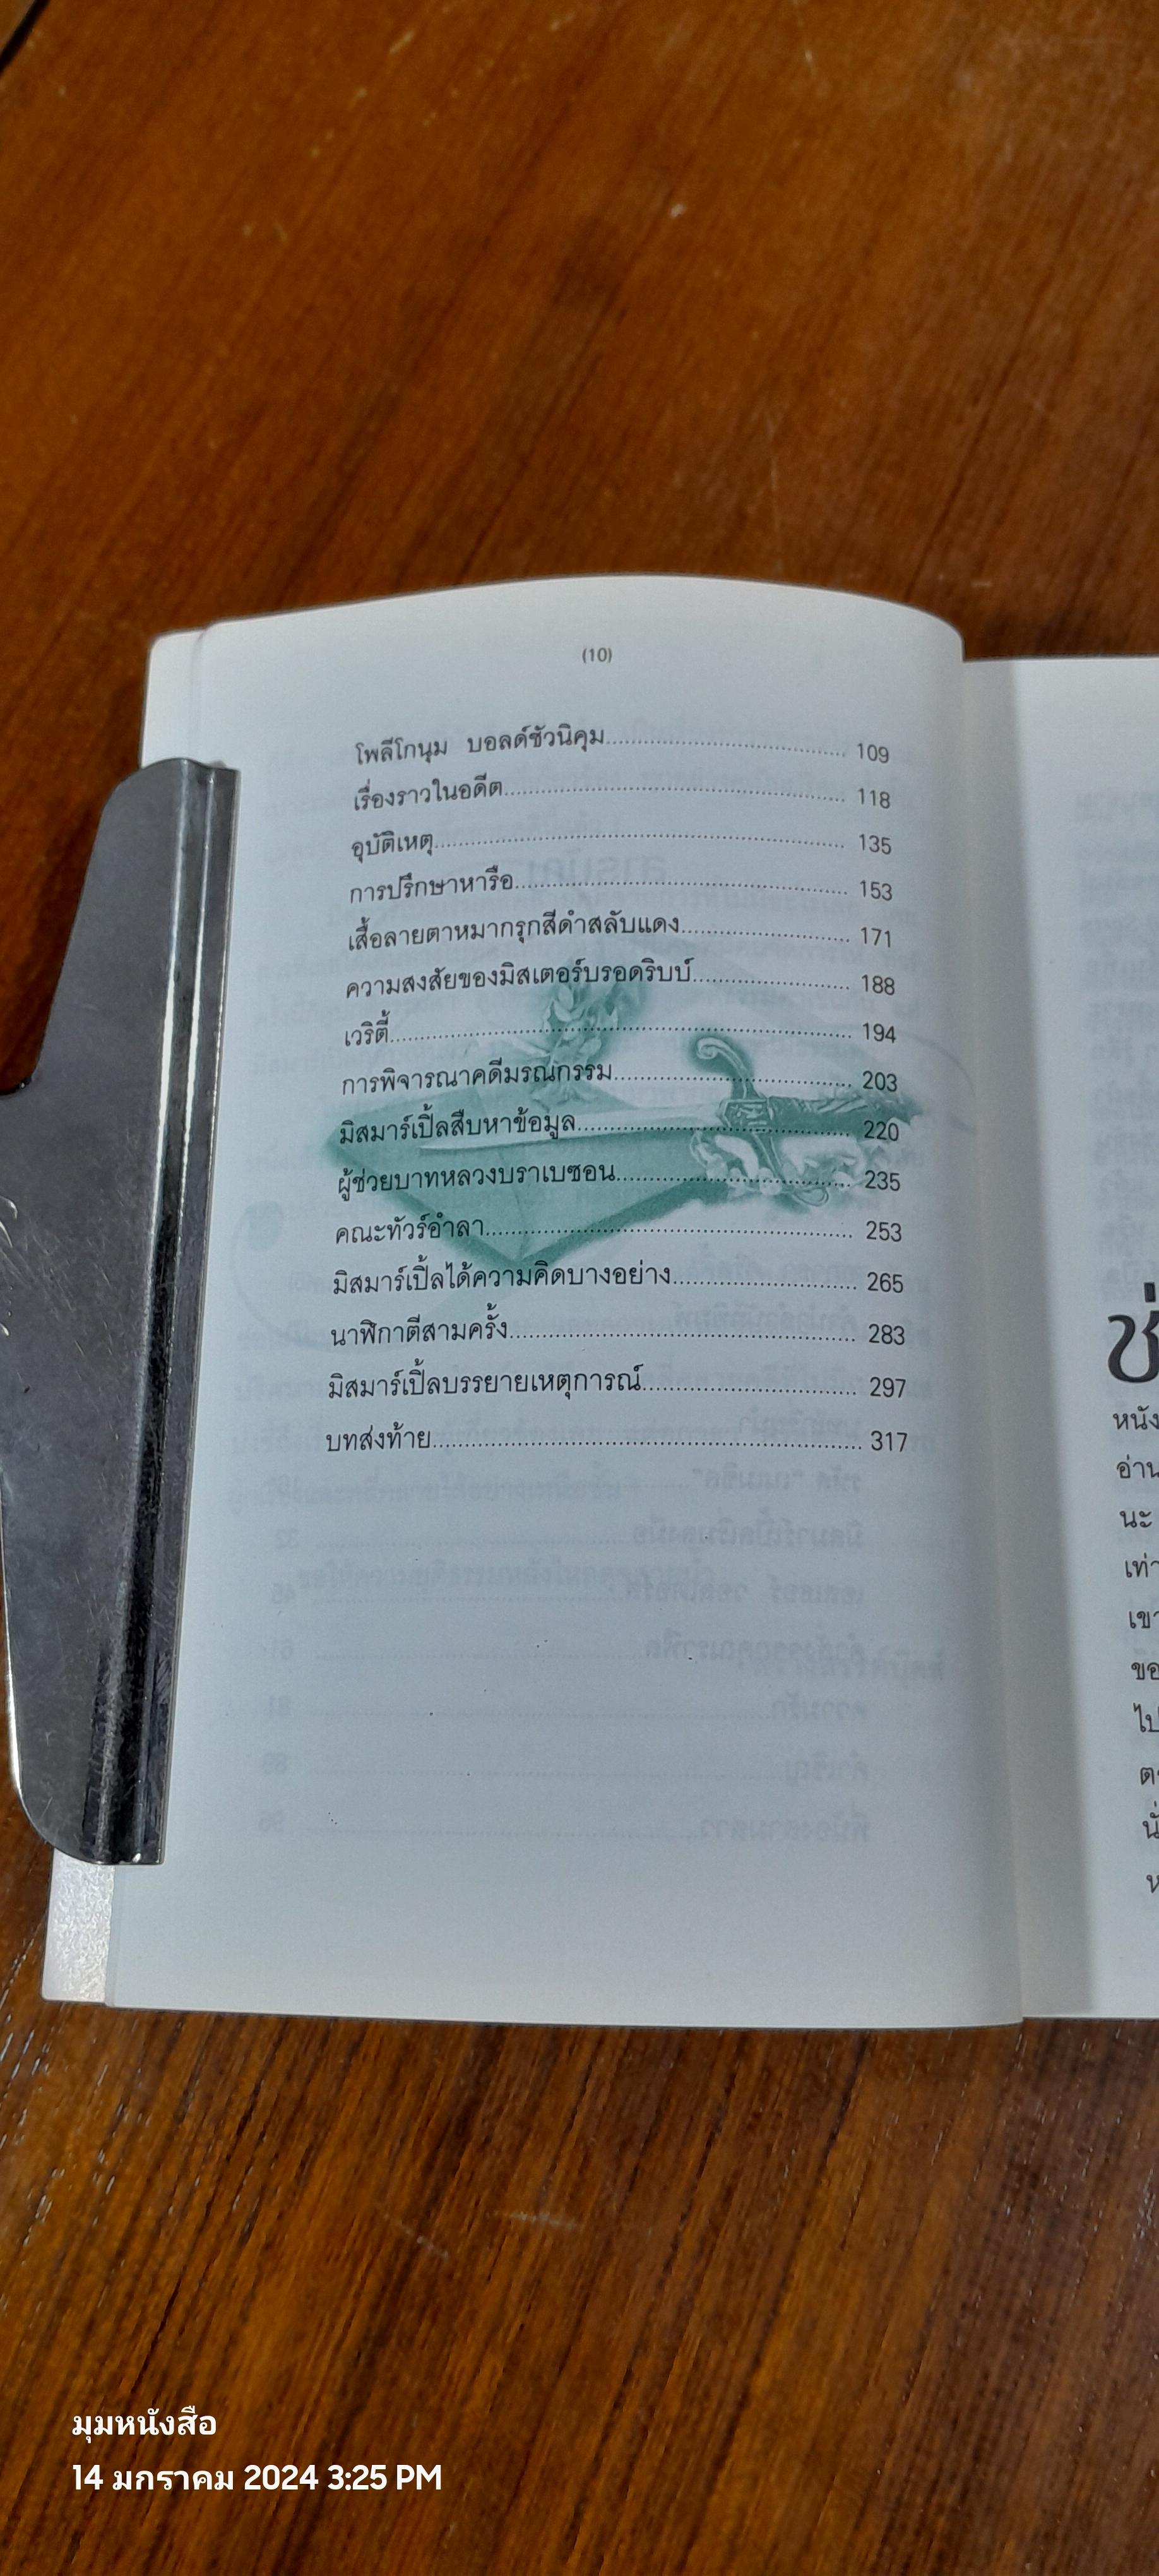 (10)
โพลีโกนุม บอลด์ชัวนิคุม 109
เรื่องราวในอดีต 118
อุบัติเหตุ 135
การปรึกษาหารือ 153
เสื้อลายตาหมากรุกสีดำสลับแดง 171
ความสงสัยของมิสเตอร์บรอดริบบ์ 188
เวริตี้ 194
การพิจารณาคดีมรณกรรม 203
มิสมาร์เปิ้ลสืบหาข้อมูล 220
ผู้ช่วยบาทหลวงบราเบซอน 235
คณะทัวร์อำลา 253
มิสมาร์เปิ้ลได้ความคิดบางอย่าง 265
นาฬิกาตีสามครั้ง 283
มิสมาร์เปิ้ลบรรยายเหตุการณ์ 297
บทส่งท้าย 317
ช่
หนัง
อ่าน
นะ
เท่า
เขา
ขอ
ไป
มุมหนังสือ
14 มกราคม 2024 3:25 PM